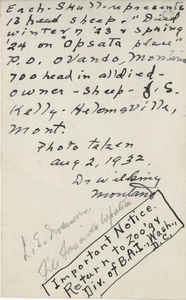 Each - Skull - represents
13 head sheep - "Died
winter '23 & spring
'24 on Opsata place"
P.O. Ovando, Montana
700 head in all died.
owner - sheep - J.S.
Kelly - Helmsville,
Mont.
Photo taken
Aug 2, 1932.
Dr Wilking
Montana
L. E. Swanson
File
Important Notice.
Return to Zoology
Div. of B.A.I., Wash,
D.C.